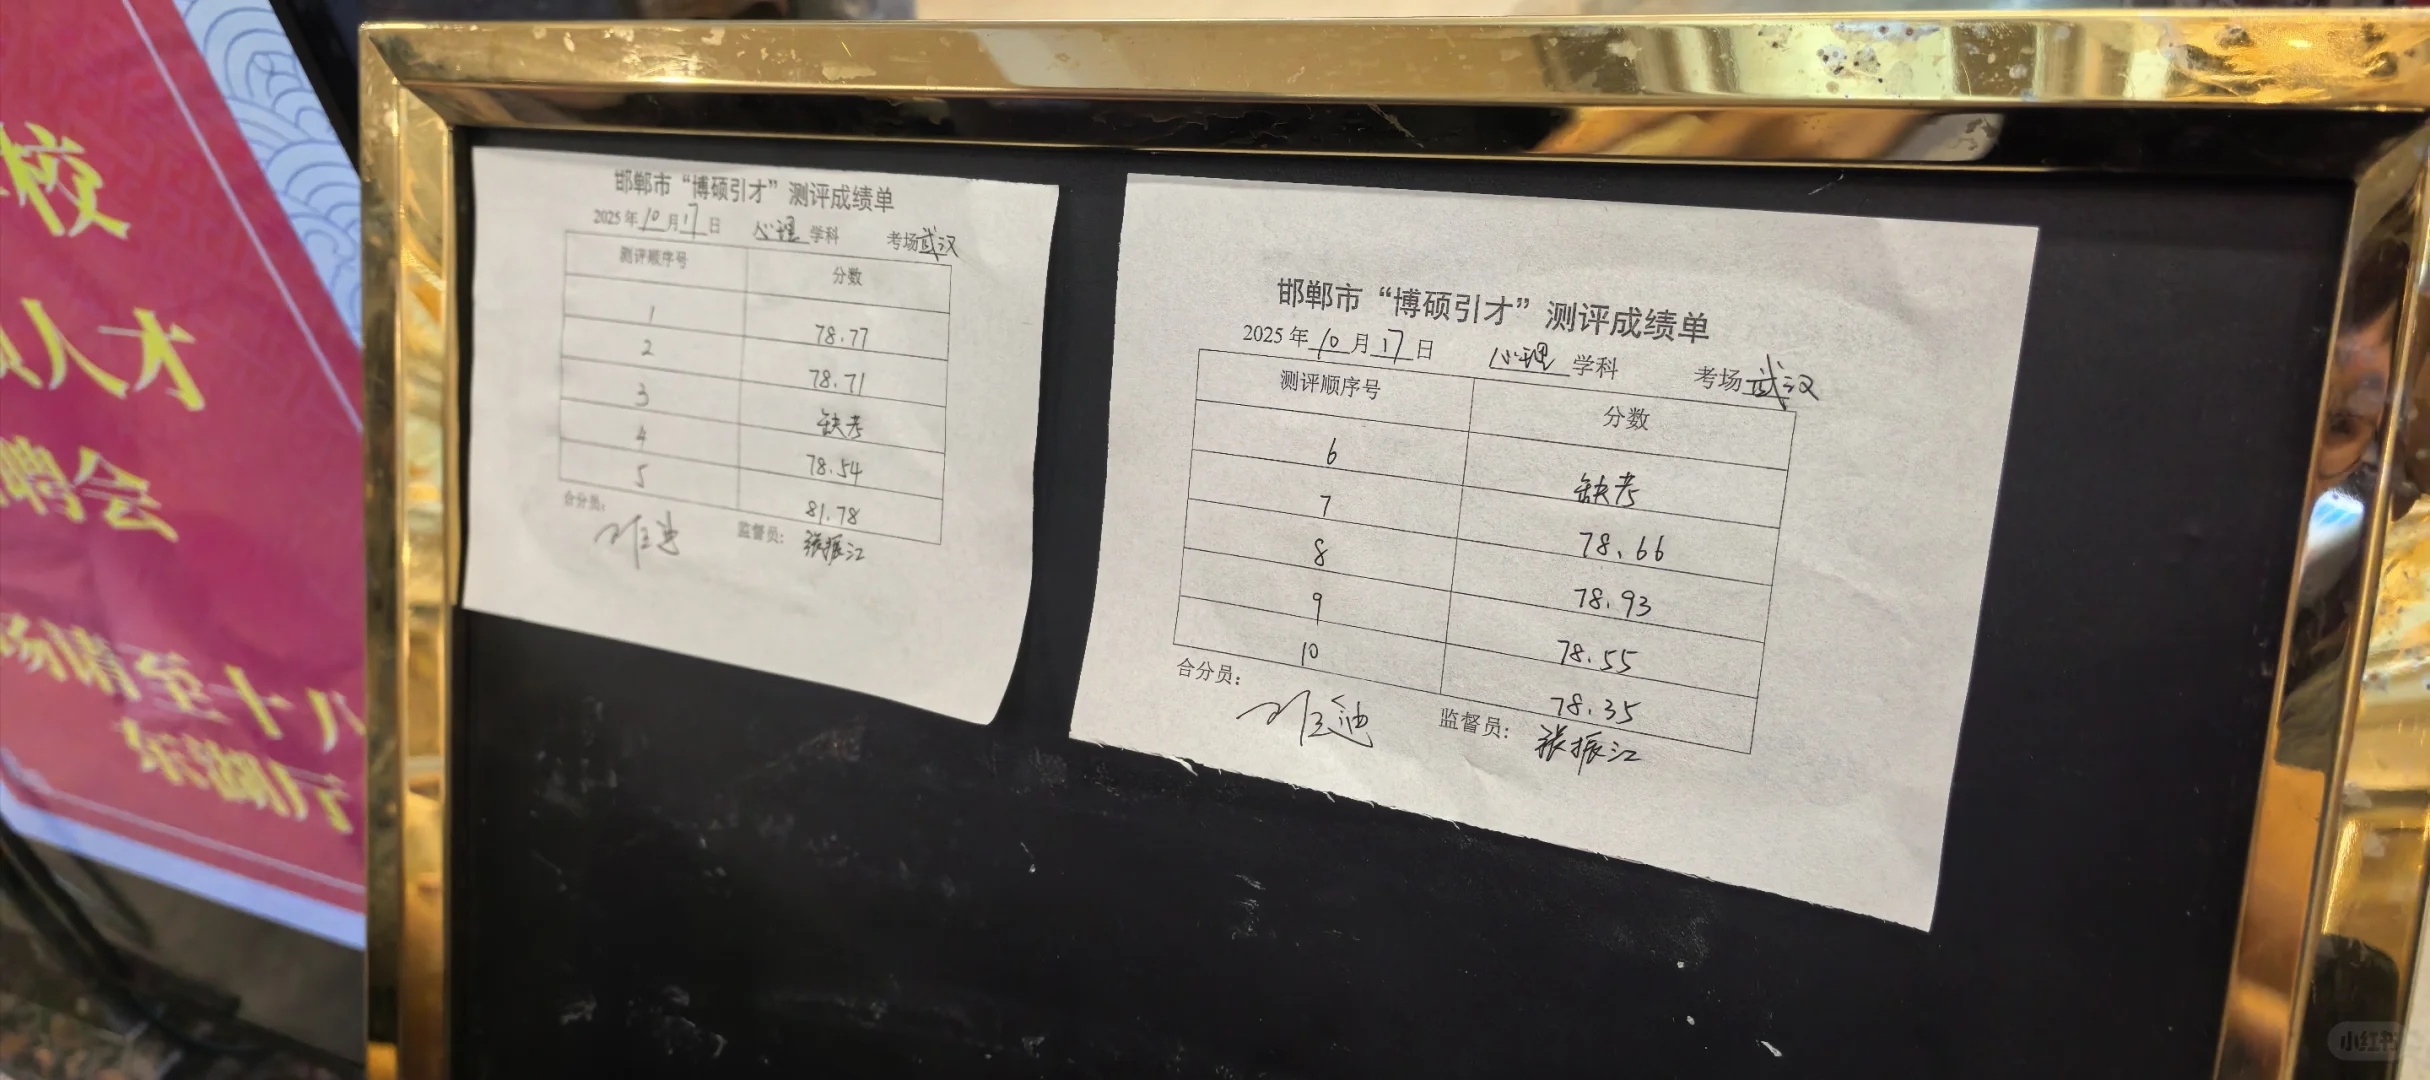 校
人才
聘会
场请至十八
东湖厅
邯郸市“博硕引才”测评成绩单
2025年10月17日 心理学科 考场武汉
测评顺序号 分数
1 78.77
2 78.71
3 缺考
4 78.54
5 81.78
合分员: 监督员: 张振江
邯郸市“博硕引才”测评成绩单
2025年10月17日 心理学科 考场武汉
测评顺序号 分数
6 缺考
7 78.66
8 78.93
9 78.55
10 78.35
合分员: 监督员: 张振江
小红书